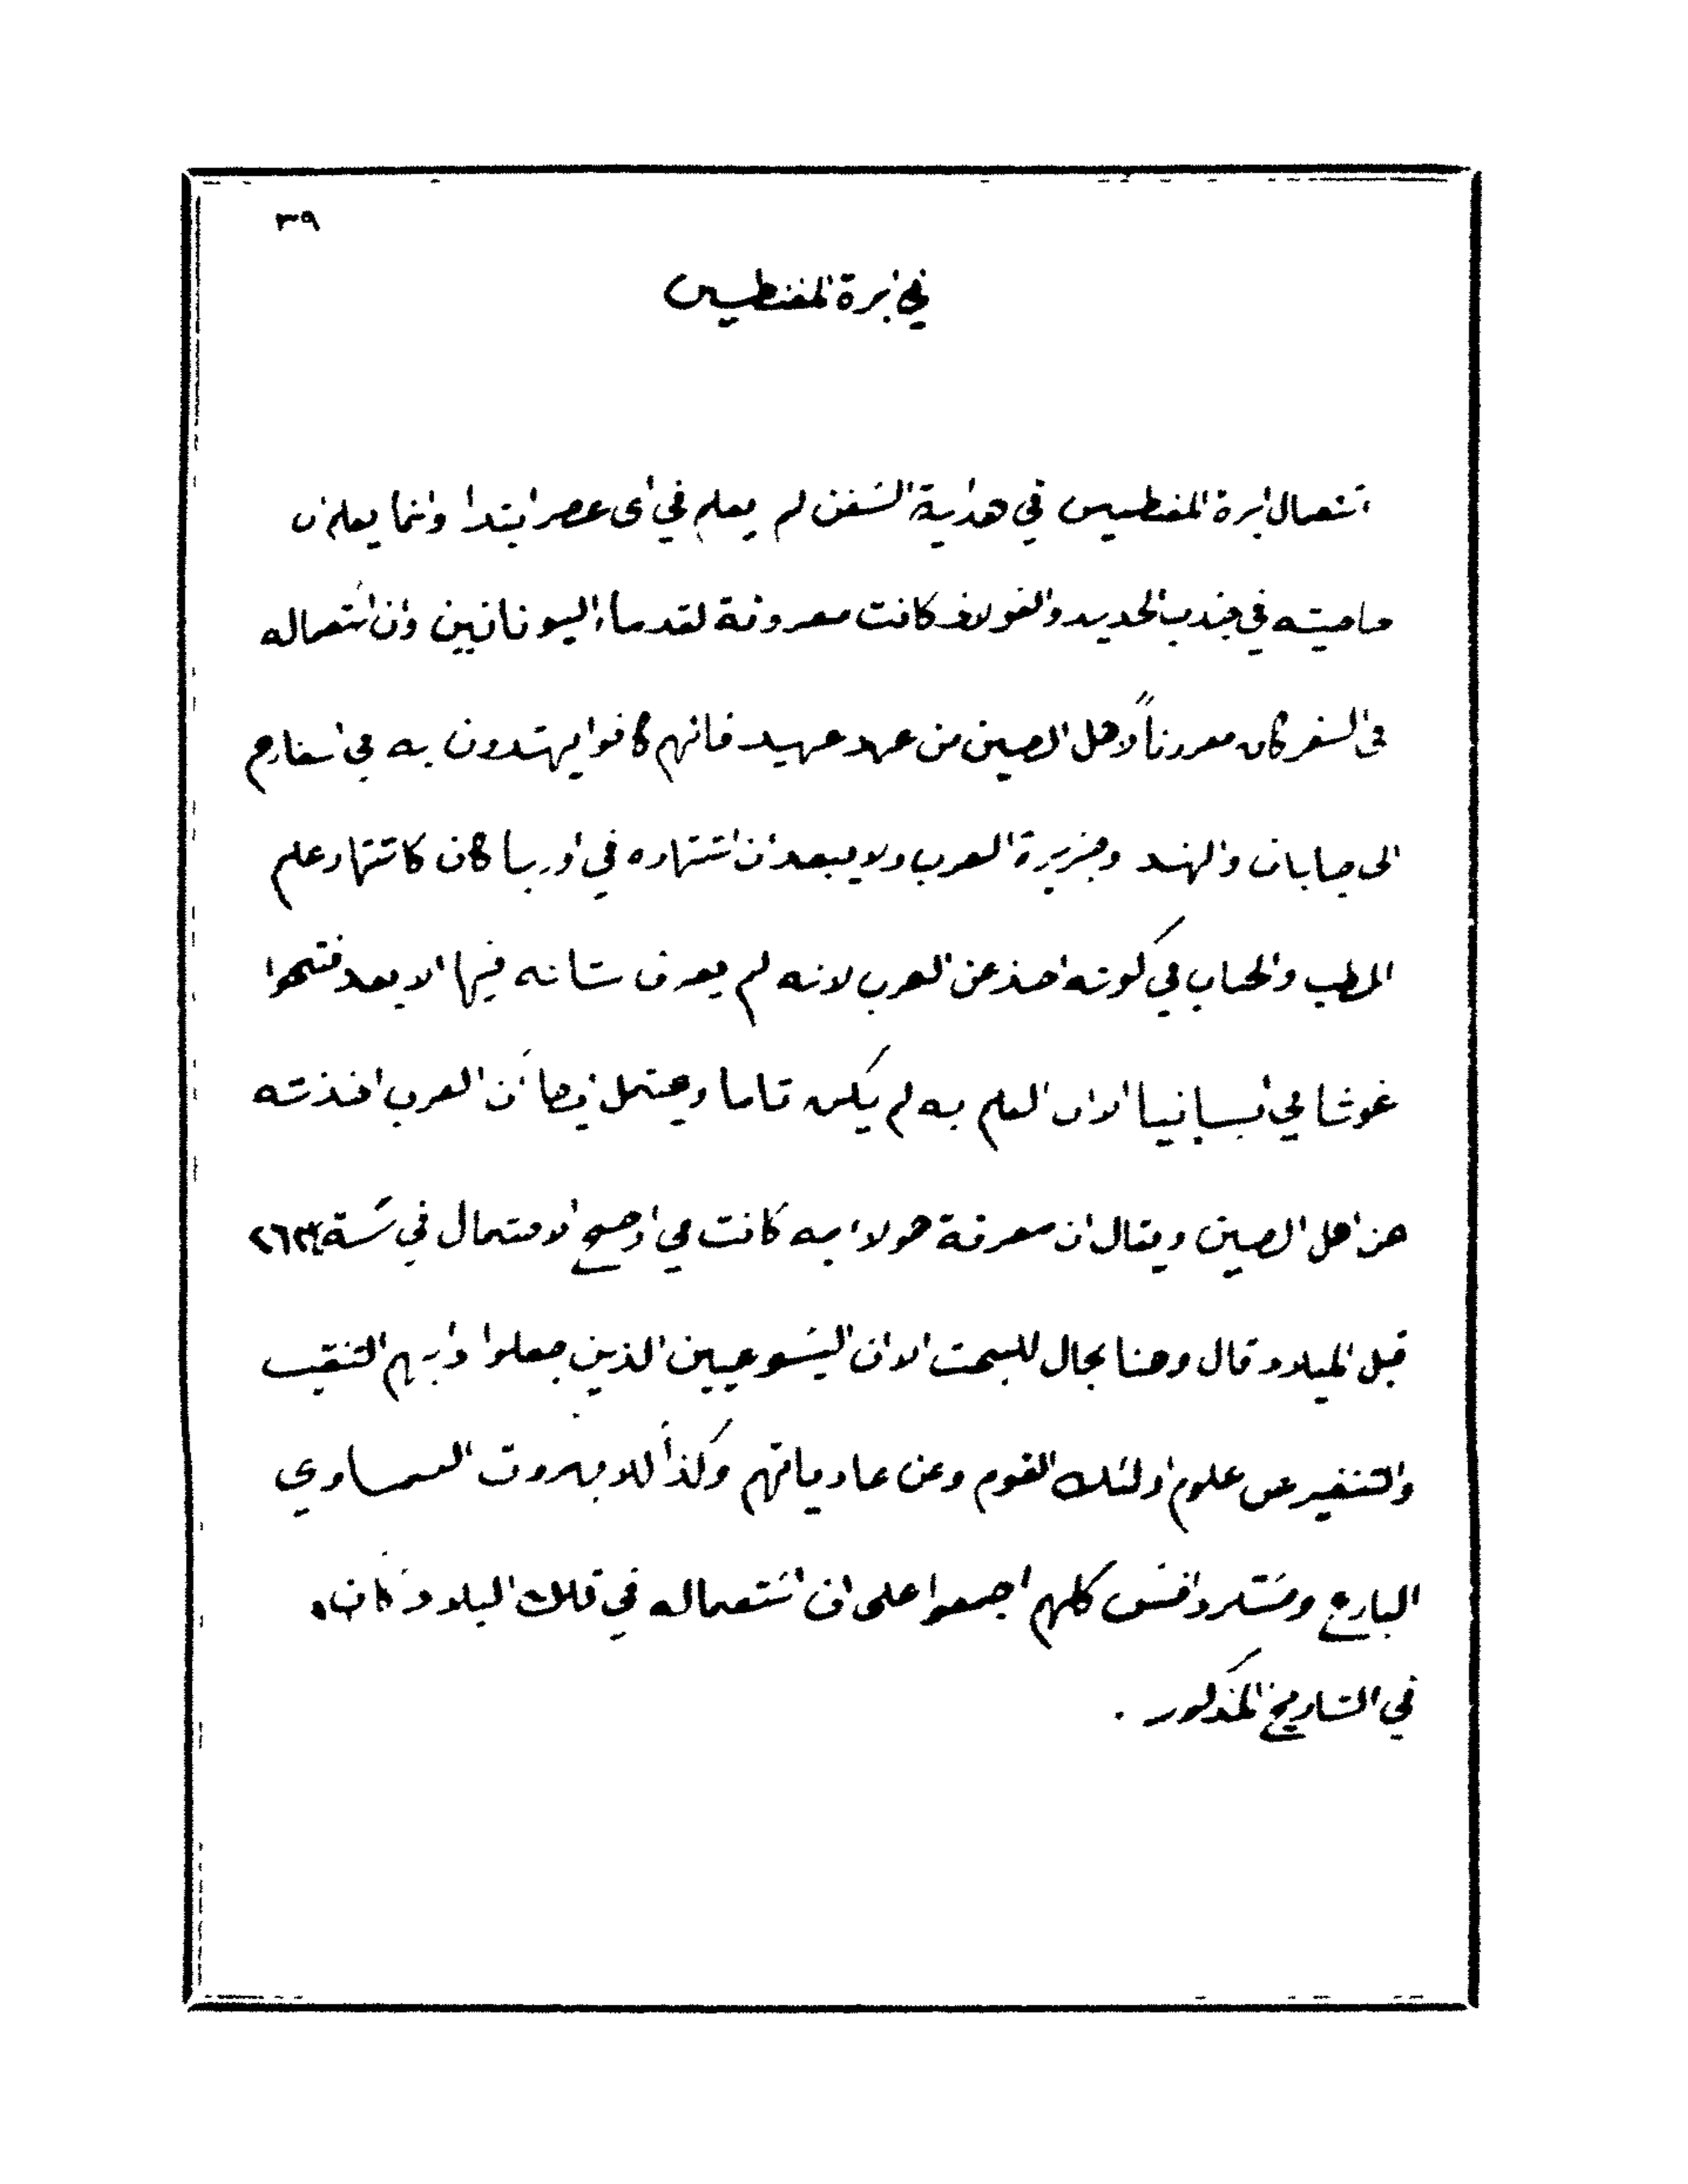 ٣٩
في ابرة المغنطيس
استعمال ابرة المغنطيس في هداية السفن لم يعلم في اى عصر ابتدا وانما يعلم ان
خاصيته في جذب الحديد والفولاذ كانت معروفة لقدماء اليونانيين وان استعماله
في السفر كان معروفاً لاهل الصين من عهد عهيد فانهم كانوا يهتدون به في اسفارهم
الى جابان والهند وجزيرة العرب ولا يبعد ان اشتهاره في اوربا كان كاشتهار علم
الطب والحساب في كونه اخذ عن العرب لانه لم يعرف شانه فيها الا بعد فتحوا
غوشا في اسبانيا الا ان العلم به لم يكن تاما ويحتمل ايضا أن العرب اخذته
عن اهل الصين ويقال ان معرفة هولاء به كانت في اوضح الاحتمال في سنة ٢٦٣٤
قبل الميلاد قال وهنا مجال للبحث الا ان اليسوعيين الذين جعلوا دابهم التنقيب
والتنقير عن علوم اولئك القوم وعن عادياتهم وكذا للابروت النمساوي
البارع ومستر دافس كلهم اجمعوا على ان استعماله في تلك البلاد كان
في التاريخ المذكور .